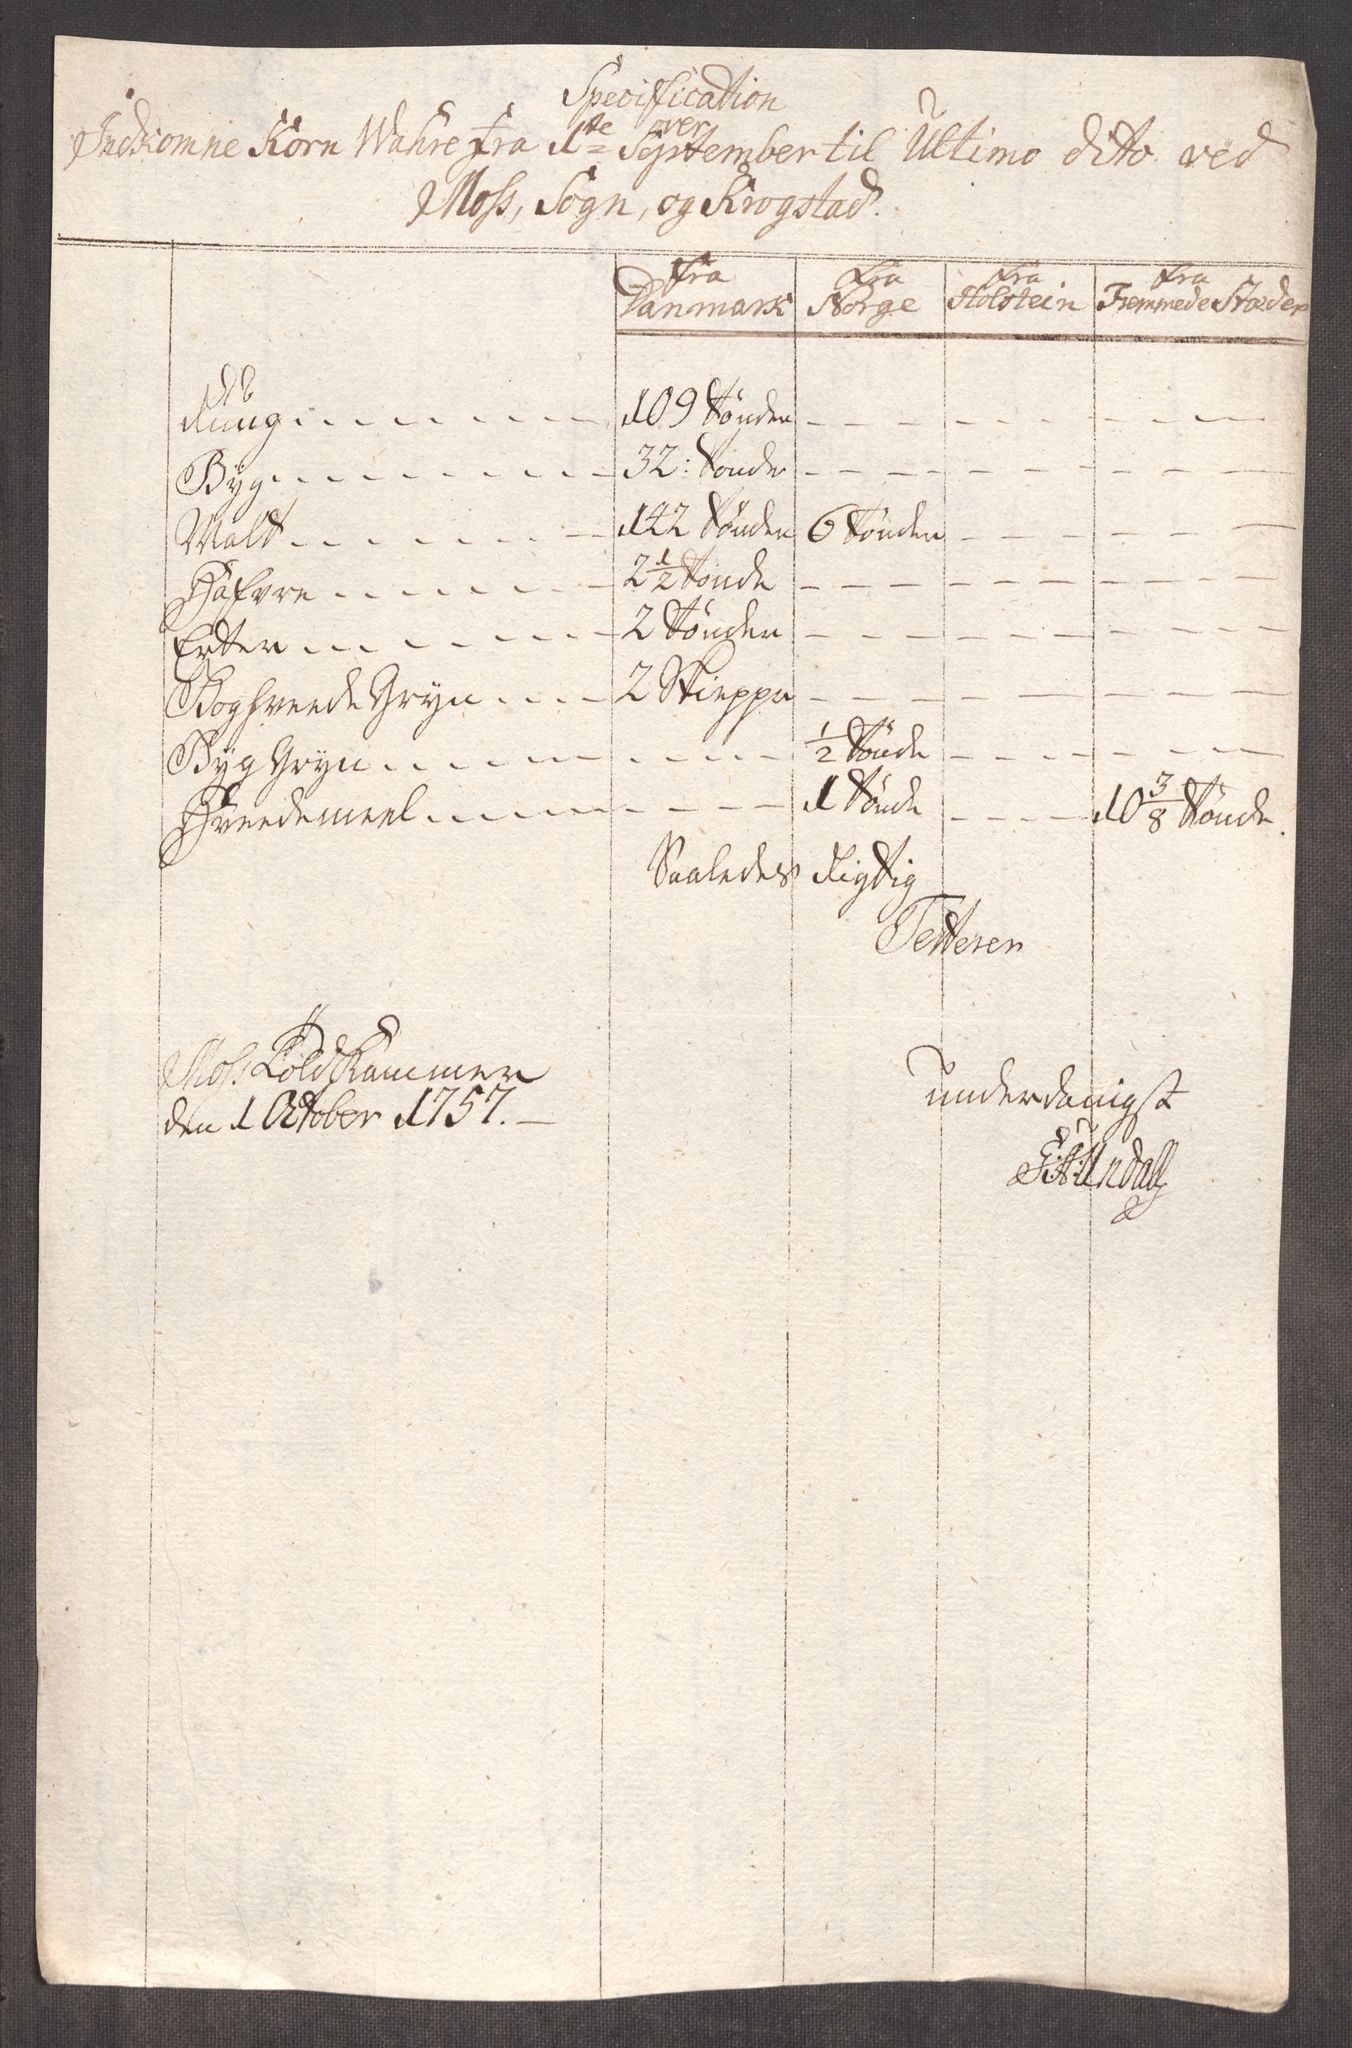 Specification
over
Indkomne Korn Wahre fra 1te September til Ultimo dito ved
Moss, Sogn, og Krogstad.
fra Danmark fra Norge fra Holstein fra Fremmede Stæder
Rúúg 109 Tønder
Byg 32: Tønder
Malt 142 Tønder 6 Tønder
Hafvre 2 1/2 Tønde
Erter 2 Tønder
Boghveede Gryn 2 Skiepper
Byg Gryn 1/2 Tønde
Hveedemeel 1 Tønde 10 3/8 Tønde.
Saaledes Rigtig
Testerer
Moss Toldkammer
den 1 October 1757.
underdanigst